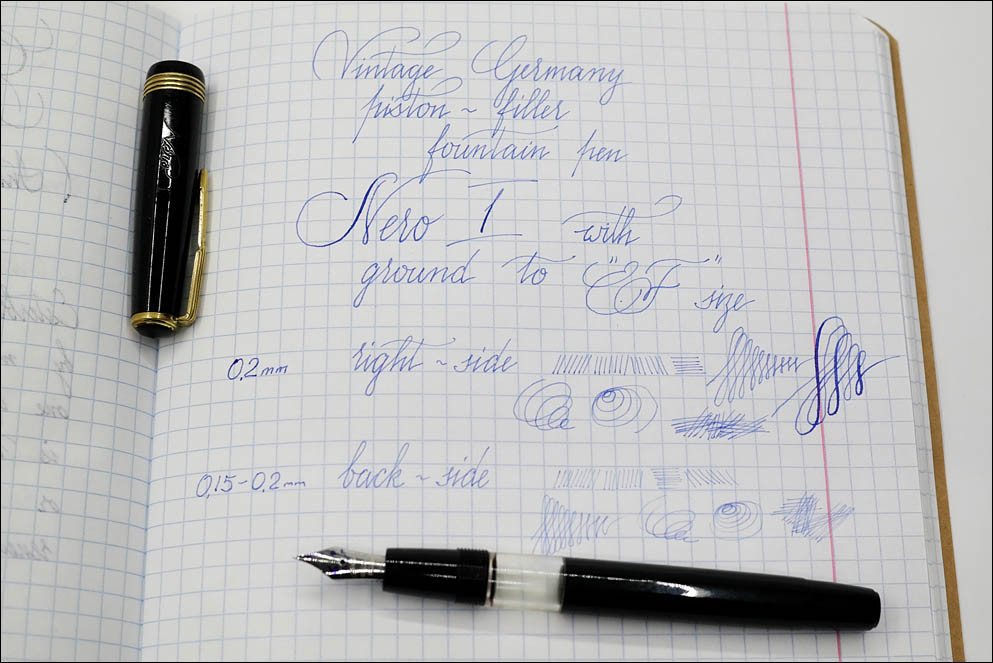 Vintage Germany
piston ~ filler
fountain pen
Nero I with
ground to "EF" size
0.2mm right ~ side
0,15-0.2mm back ~ side